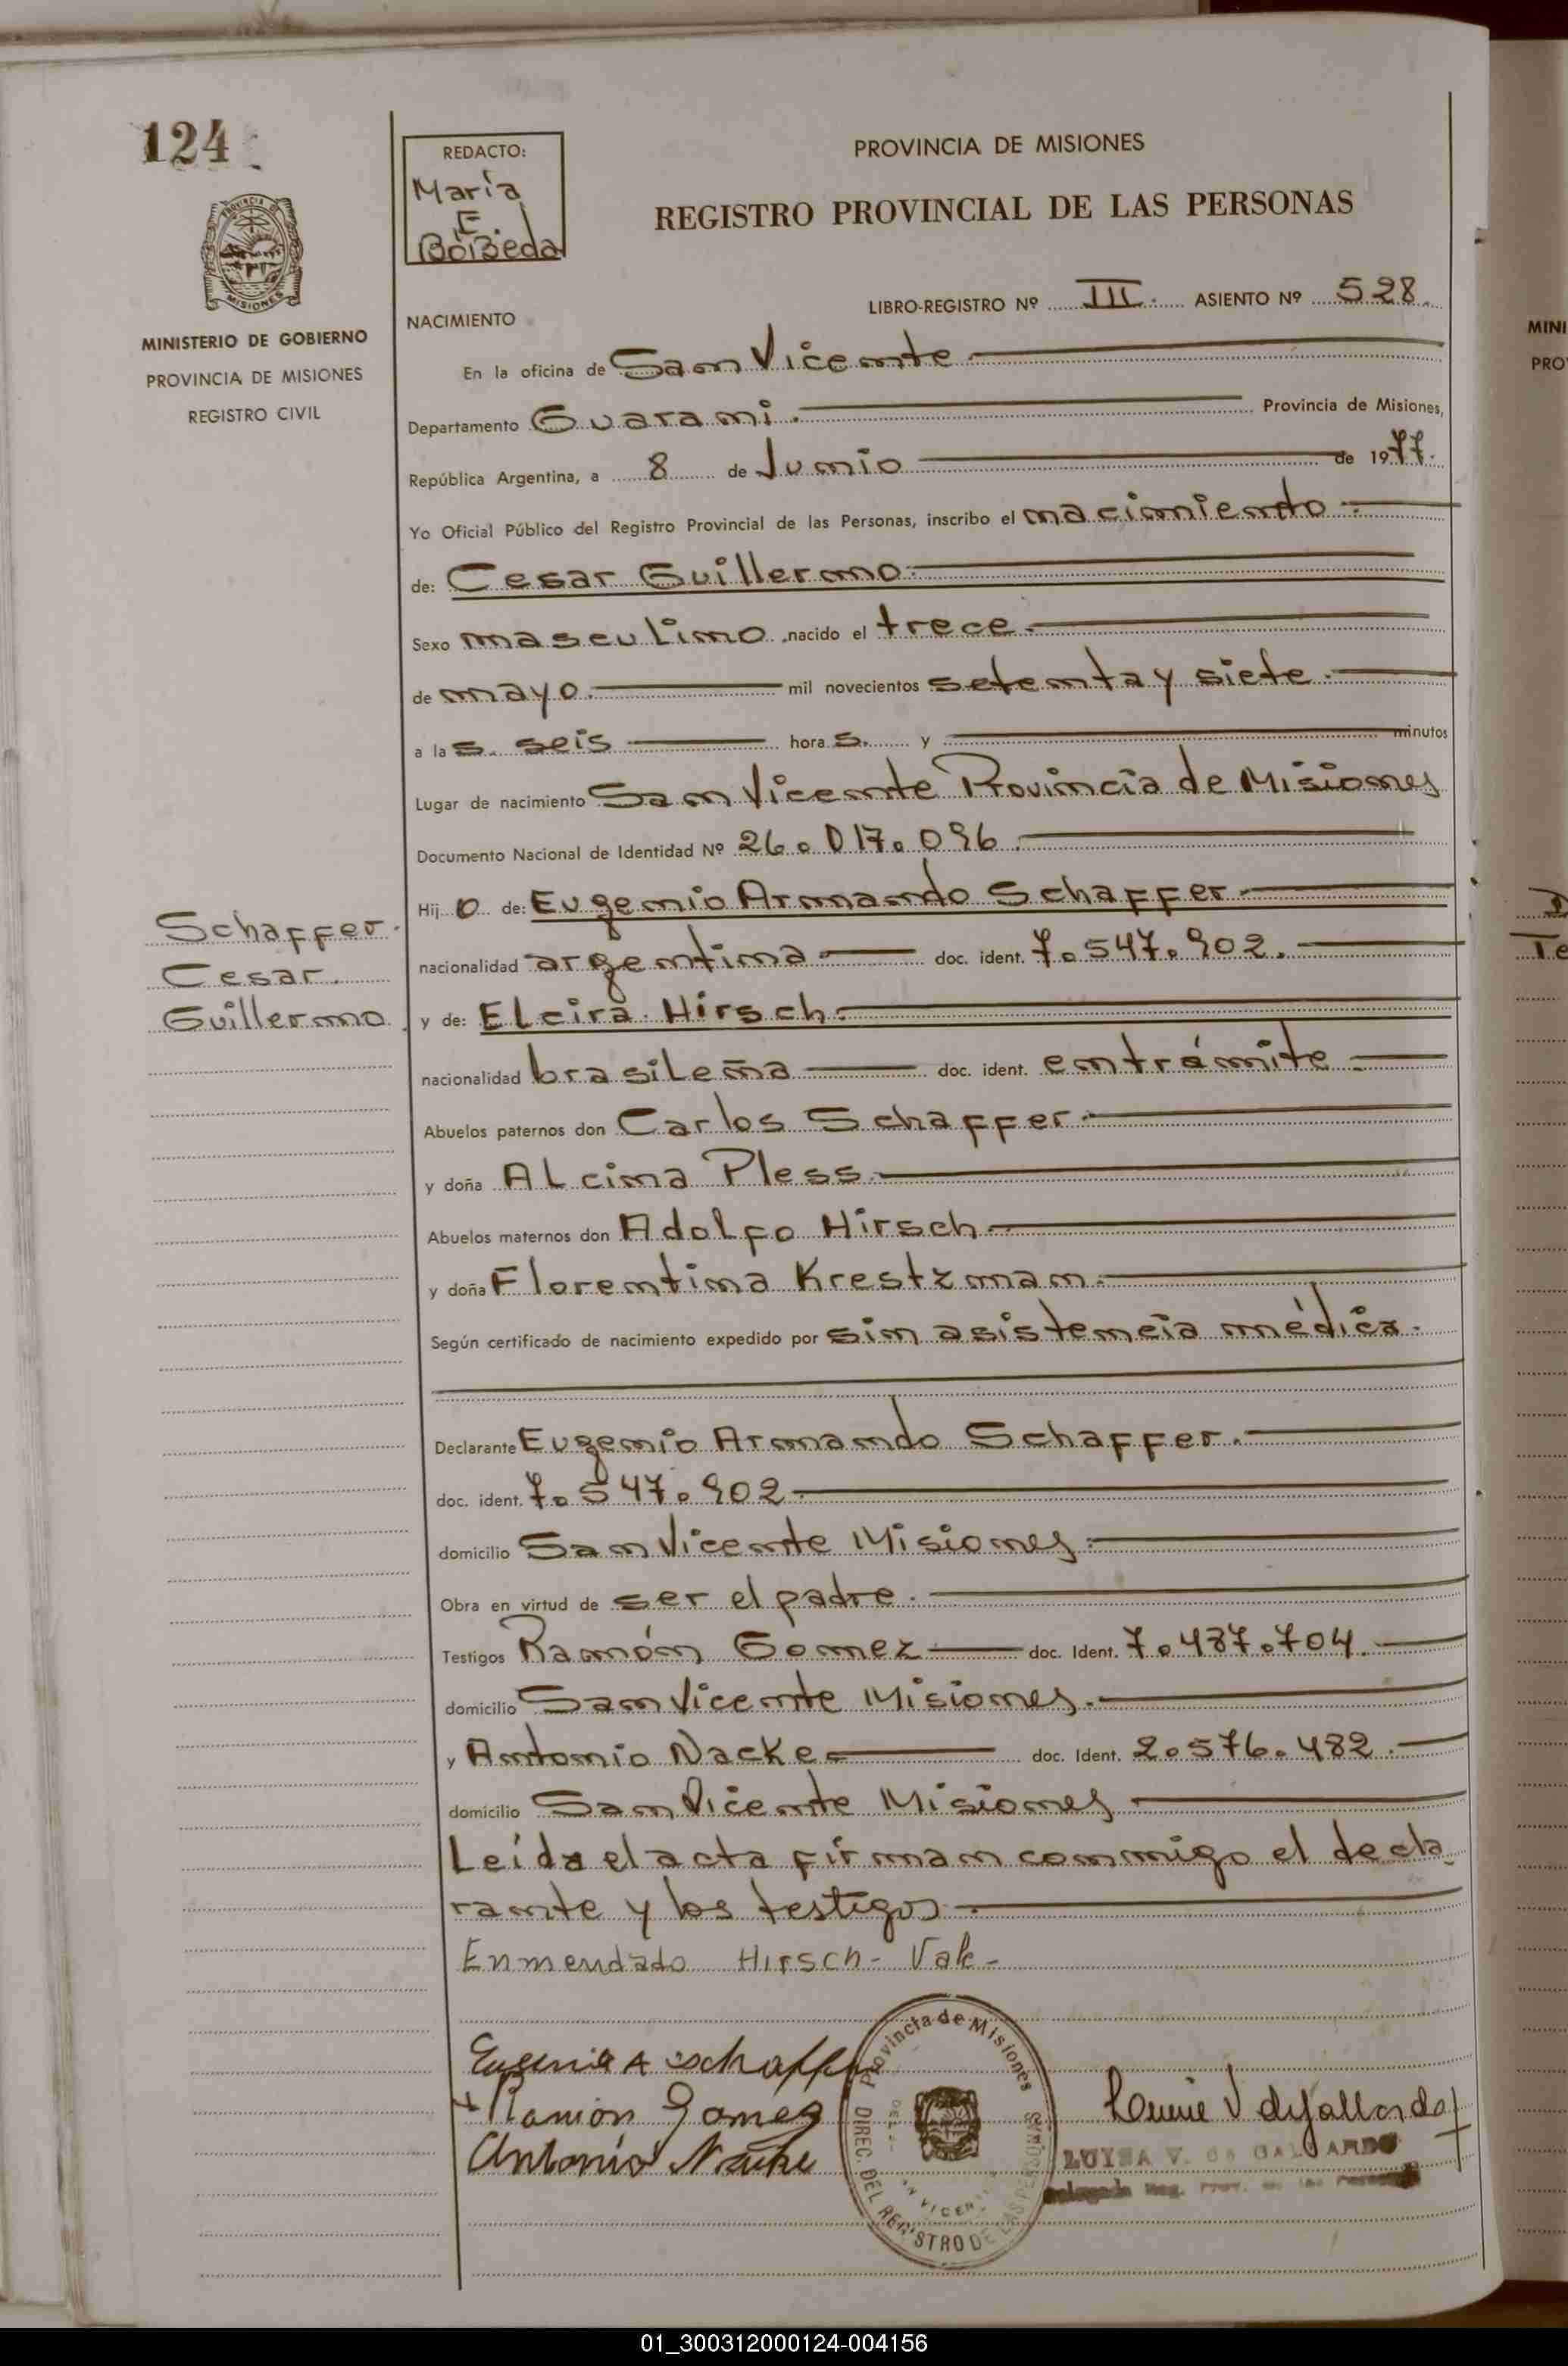 124
REDACTO:
María
E.
BoBeda
PROVINCIA DE MISIONES
REGISTRO PROVINCIAL DE LAS PERSONAS
MISIONES
MINISTERIO DE GOBIERNO
PROVINCIA DE MISIONES
REGISTRO CIVIL
LIBRO-REGISTRO Nº III. ASIENTO Nº 528.
NACIMIENTO
En la oficina de San Vicente
Departamento Guarani. Provincia de Misiones,
República Argentina, a 8 de Junio de 1977.
Yo Oficial Público del Registro Provincial de las Personas, inscribo el nacimiento
de: Cesar Guillermo
Sexo masculino nacido el trece.
de mayo. mil novecientos setenta y siete.
a las seis horas. y minutos
Lugar de nacimiento San Vicente Provincia de Misiones
Documento Nacional de Identidad Nº 26.017.096.
Hijo de: Eugenio Armando Schaffer
nacionalidad argentina doc. ident. 7.547.902.
Schaffer
Cesar.
Guillermo
y de: Elcira Hirsch
nacionalidad brasileña doc. ident. entrámite
Abuelos paternos don Carlos Schaffer
y doña Alcina Pless.
Abuelos maternos don Adolfo Hirsch
y doña Florentina Krestzman.
Según certificado de nacimiento expedido por sin asistencia médica.
Declarante Eugenio Armando Schaffer.
doc. ident. 7.547.902
domicilio San Vicente Misiones
Obra en virtud de ser el padre.
Testigos Ramón Gomez doc. Ident. 7.487.704.
domicilio San Vicente Misiones.
y Antonio Nacke doc. Ident. 2.576.482.
domicilio San Vicente Misiones
Leída el acta firman conmigo el decla
rante y los testigos
Enmendado Hirsch - Vale -
Eugenio A Schaffer
Ramón Gomez
Antonio Nacke
Provincia de Misiones
DIREC. DEL REGISTRO DE LAS PERSONAS
LUISA V. de GALLARDO
MINI
PRO
01_300312000124-004156